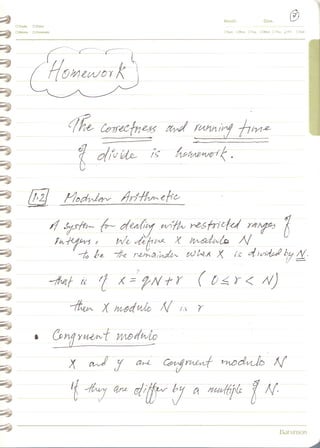 7
Homework
The correctness and running time
of divide is homework.
1.2 Modular Arithmetic
A system for dealing with restricted ranges of
integers. We define X modulo N
to be the remainder when X is divided by N.
that is if X = qN + r ( 0 ≤ r < N)
then X modulo N is r
• Congruent modulo
X and y are congruent modulo N
if they are differ by a multiple of N.